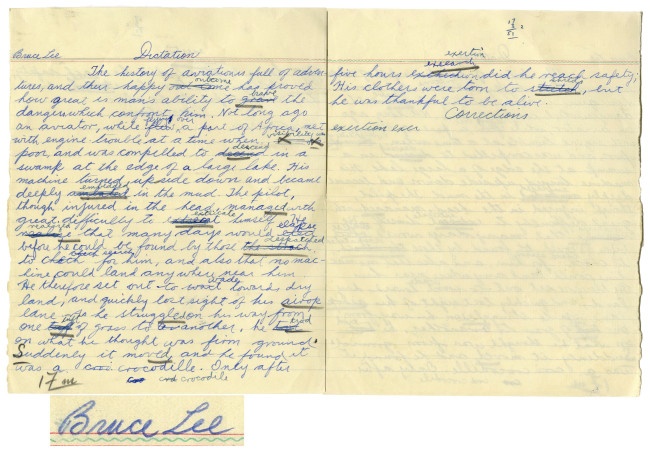 Bruce Lee Dictation
The history of aviation is full of adven-
outcome
tures, and their happy has proved
brave
how great is man's ability to the
dangers wich confront him. Not long ago
flying over
an aviator, while a part of Africa, met
visibility was
with engine trouble at a time when
descend
poor, and was compelled to in a
swamp at the edge of a large lake. His
machine turned upside down and becam
deeply in the mud. The pilot,
though injured in the head, managed with
great difficulty to himself. He
realized
that many days would elapse
despatched
before he could be found by those
to for him, and also that no mac-
hine could land any where near him.
wade
He therefore set out to towards dry
land, and quickly lost sight of his airop
lane. As he struggled on his way from
tuft
one of grass to another, he trod
on what he thought was firm ground.
Suddenly it moved, and he found it
was a crocodille. Only after
17 m crocodile
exertion
five hours did he reach safety;
shreds
His clothers were torn to but
he was thankful to be alive.
Corrections
exertion exer
Bruce Lee